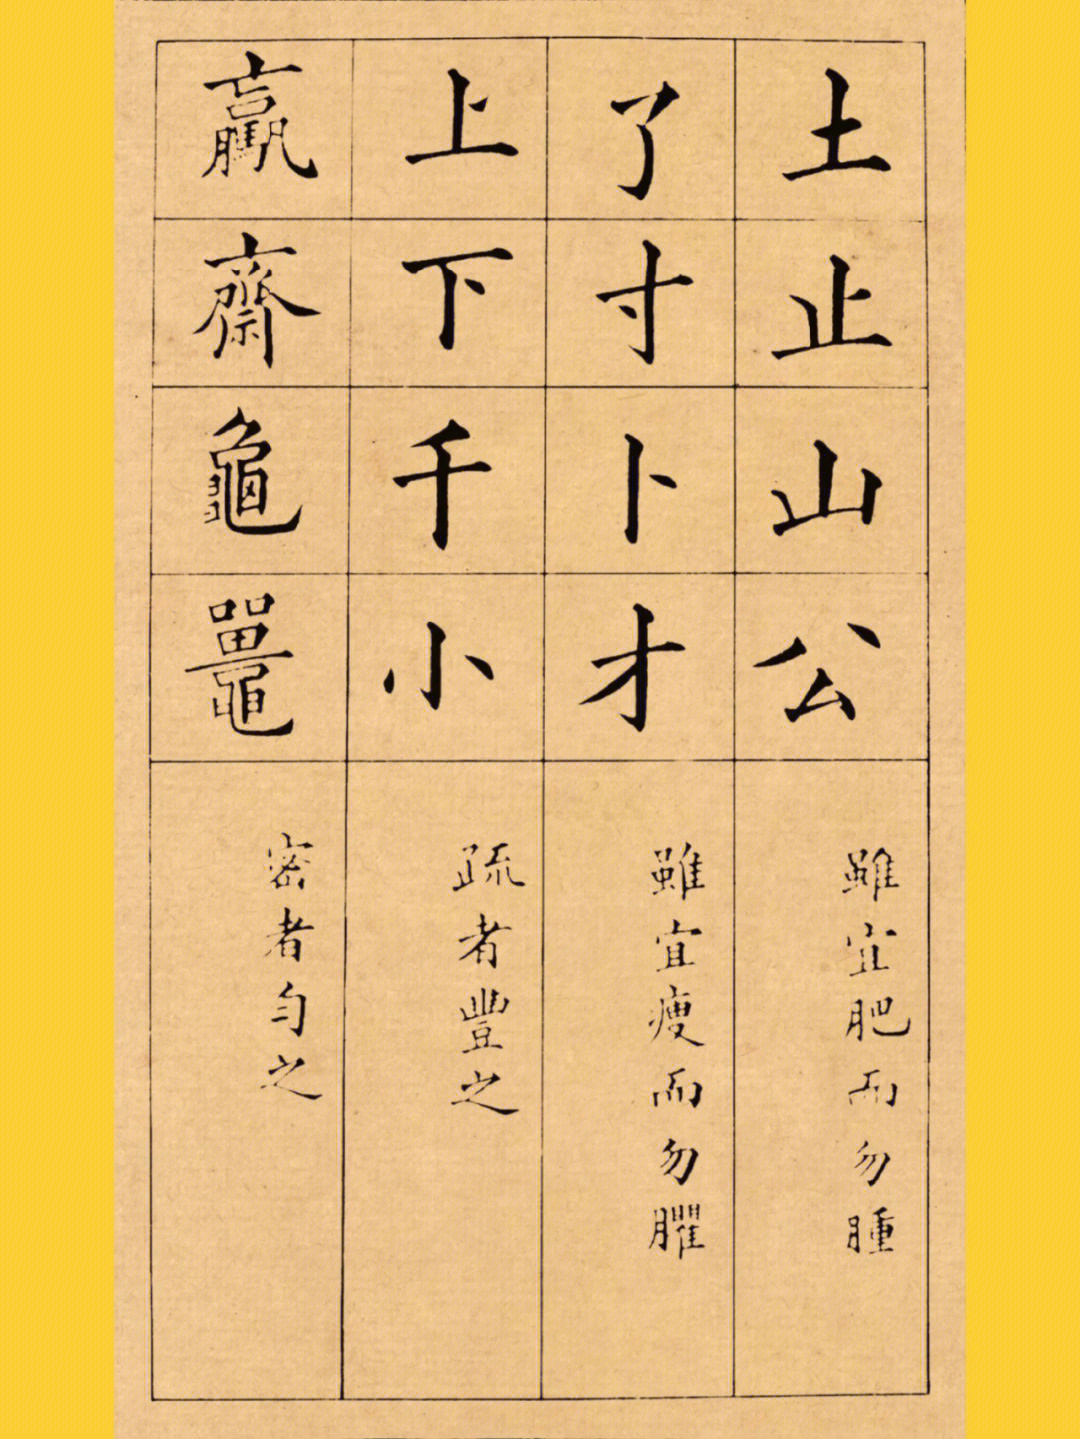 土止山公
雖宜肥而勿腫
了寸卜才
雖宜瘦而勿臞
上下千小
疏者豐之
齋龜鼉
密者勻之